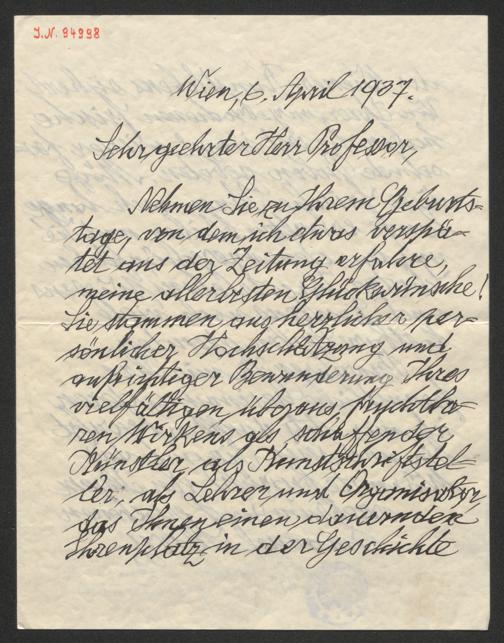 J.N. 94998
Wien, 6. April 1937.
Sehr geehrter Herr Professor,
Nehmen Sie zu Ihrem Geburts-
tage, von dem ich etwas verspä-
tet aus der Zeitung erfahre,
meine allerbesten Glückwünsche!
Sie stammen aus herzlicher per-
sönlicher Hochschätzung und
aufrichtiger Bewunderung Ihres
vielfältigen überaus fruchtba-
ren Wirkens als schaffender
Künstler, als Kunstschriftstel-
ler, als Lehrer und Organisator,
das Ihnen einen dauernden
Ehrenplatz in der Geschichte